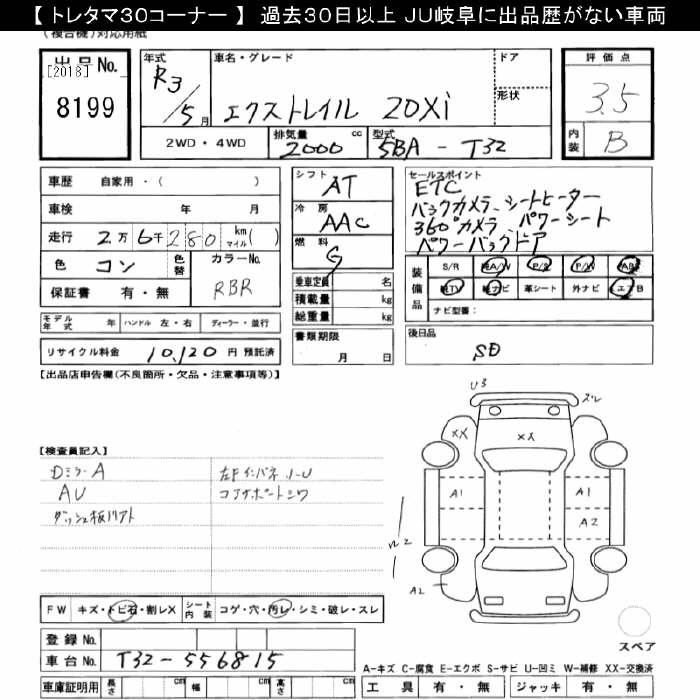 【 トレタマ30コーナー 】 過去30日以上 JU岐阜に出品歴がない車両
(複合機)対応用紙
出品No. [2018] 8199
年式 R3/5月
車名・グレード エクストレイル 20Xi
ドア
形状
2WD・4WD
排気量 2000 cc
型式 5BA - T32
評価点 3.5
内装 B
車歴 自家用・( )
車検 年 月
走行 2万 6千 280 km マイル( )
色 コン 色替 カラーNo. RBR
保証書 有・無
モデル年式 年 ハンドル 左・右 ディーラー・並行
リサイクル料金 10,120 円 預託済
シフト AT
冷房 AAC
燃料 G
乗車定員 名
積載量 kg
総重量 kg
書類期限 月 日
セールスポイント
ETC
バックカメラ、シートヒーター
360°カメラ パワーシート
パワーバックドア
装備品 S/R 純A/W P/S P/W ABS
純TV 純ナビ 革シート 外ナビ エアB
ナビ型番:
後日品
SD
【出品店申告欄(不良箇所・欠品・注意事項等)】
【検査員記入】
Dミラー A
AU
左Fインパネ ハーU
コアサポートシワ
U3
XX
XX
A1
A1
A2
A2
FW キズ・トビ石・割レX シート内装 コゲ・穴・汚レ・シミ・破レ・スレ
登録No.
車台No. T32-556815
車庫証明用 長さ cm 幅 cm 高さ cm
スペア
A-キズ C-腐食 E-エクボ S-サビ U-凹ミ W-補修 XX-交換済
工具 有・無 ジャッキ 有・無